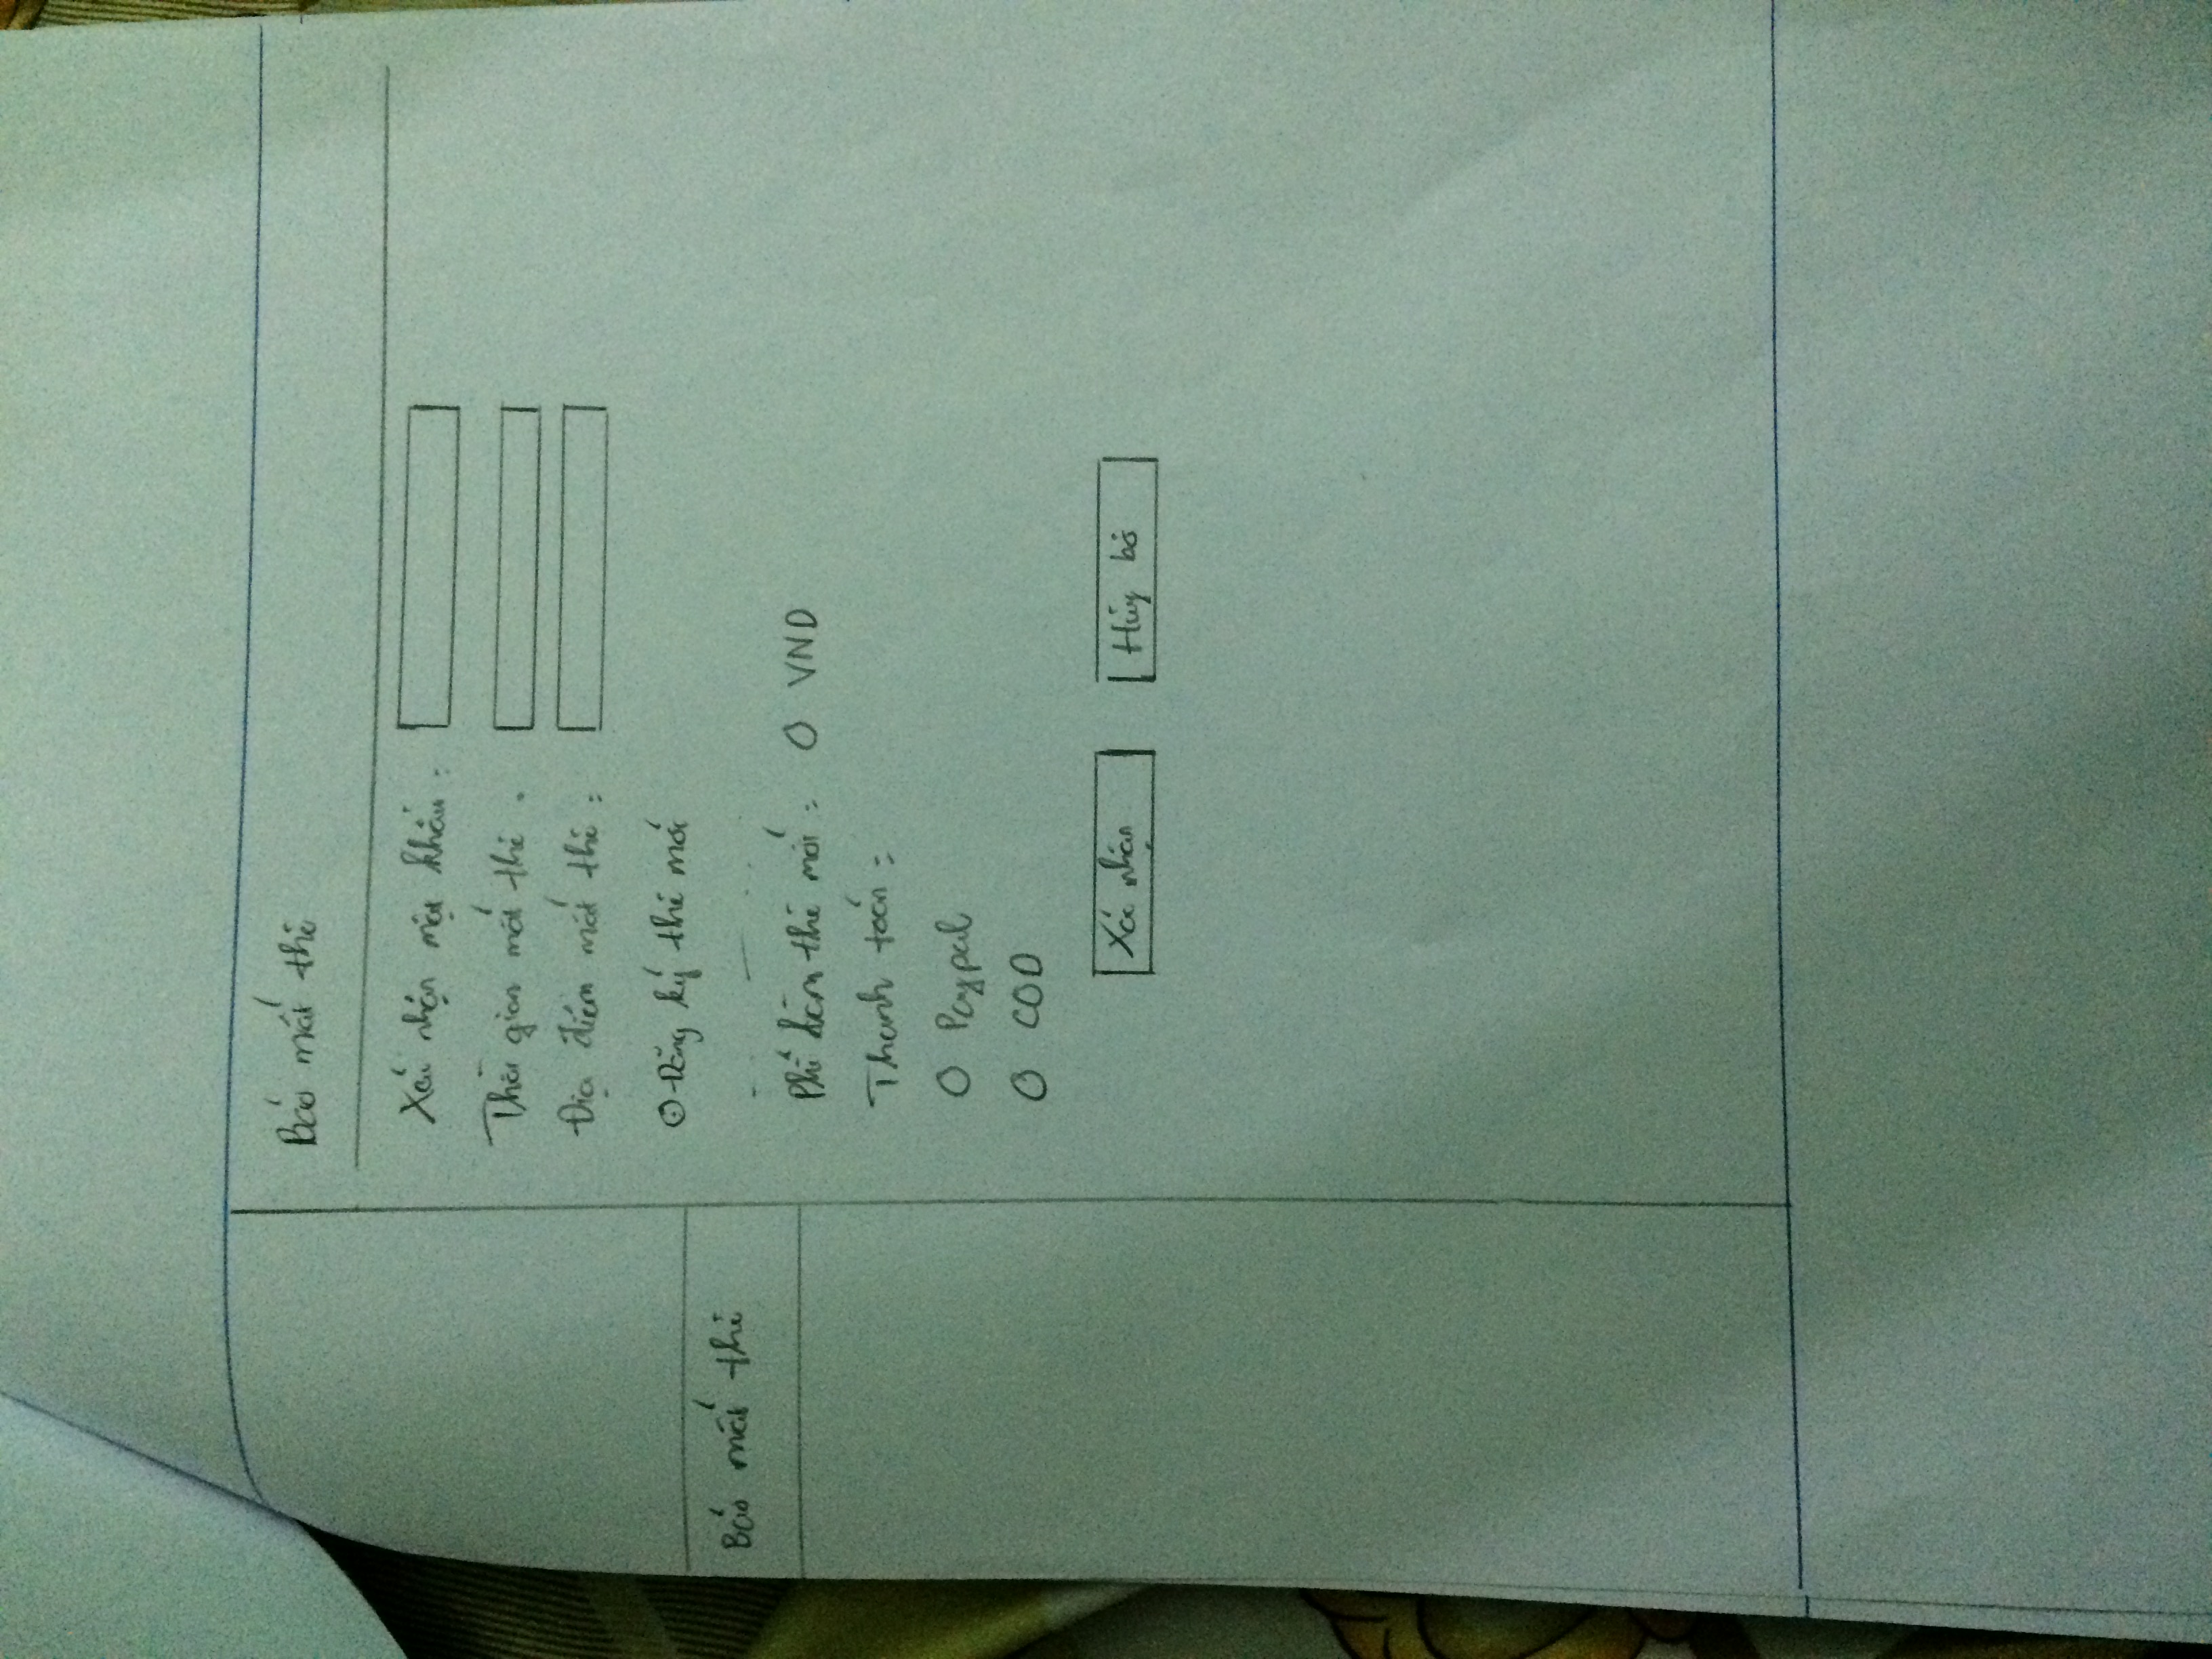 Báo mất thẻ
Xác nhận mật khẩu :
Thời gian mất thẻ :
Địa điểm mất thẻ :
Đăng ký thẻ mới
Báo mất thẻ
Phí làm thẻ mới : 0 VND
Thanh toán :
Paypal
COD
Xác nhận
Hủy bỏ